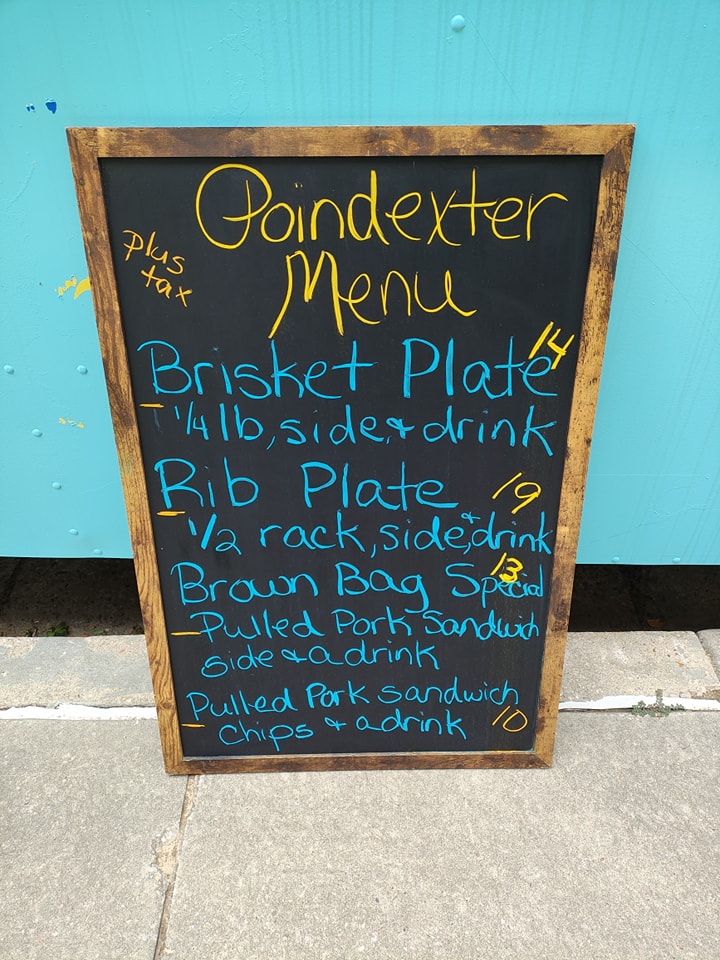 Poindexter
Menu
plus
tax
Brisket Plate 14
- 1/4 lb, side & drink
Rib Plate 19
- 1/2 rack, side, & drink
Brown Bag Special 13
- Pulled Pork Sandwich
side & a drink
Pulled Pork sandwich
- chips & a drink 10